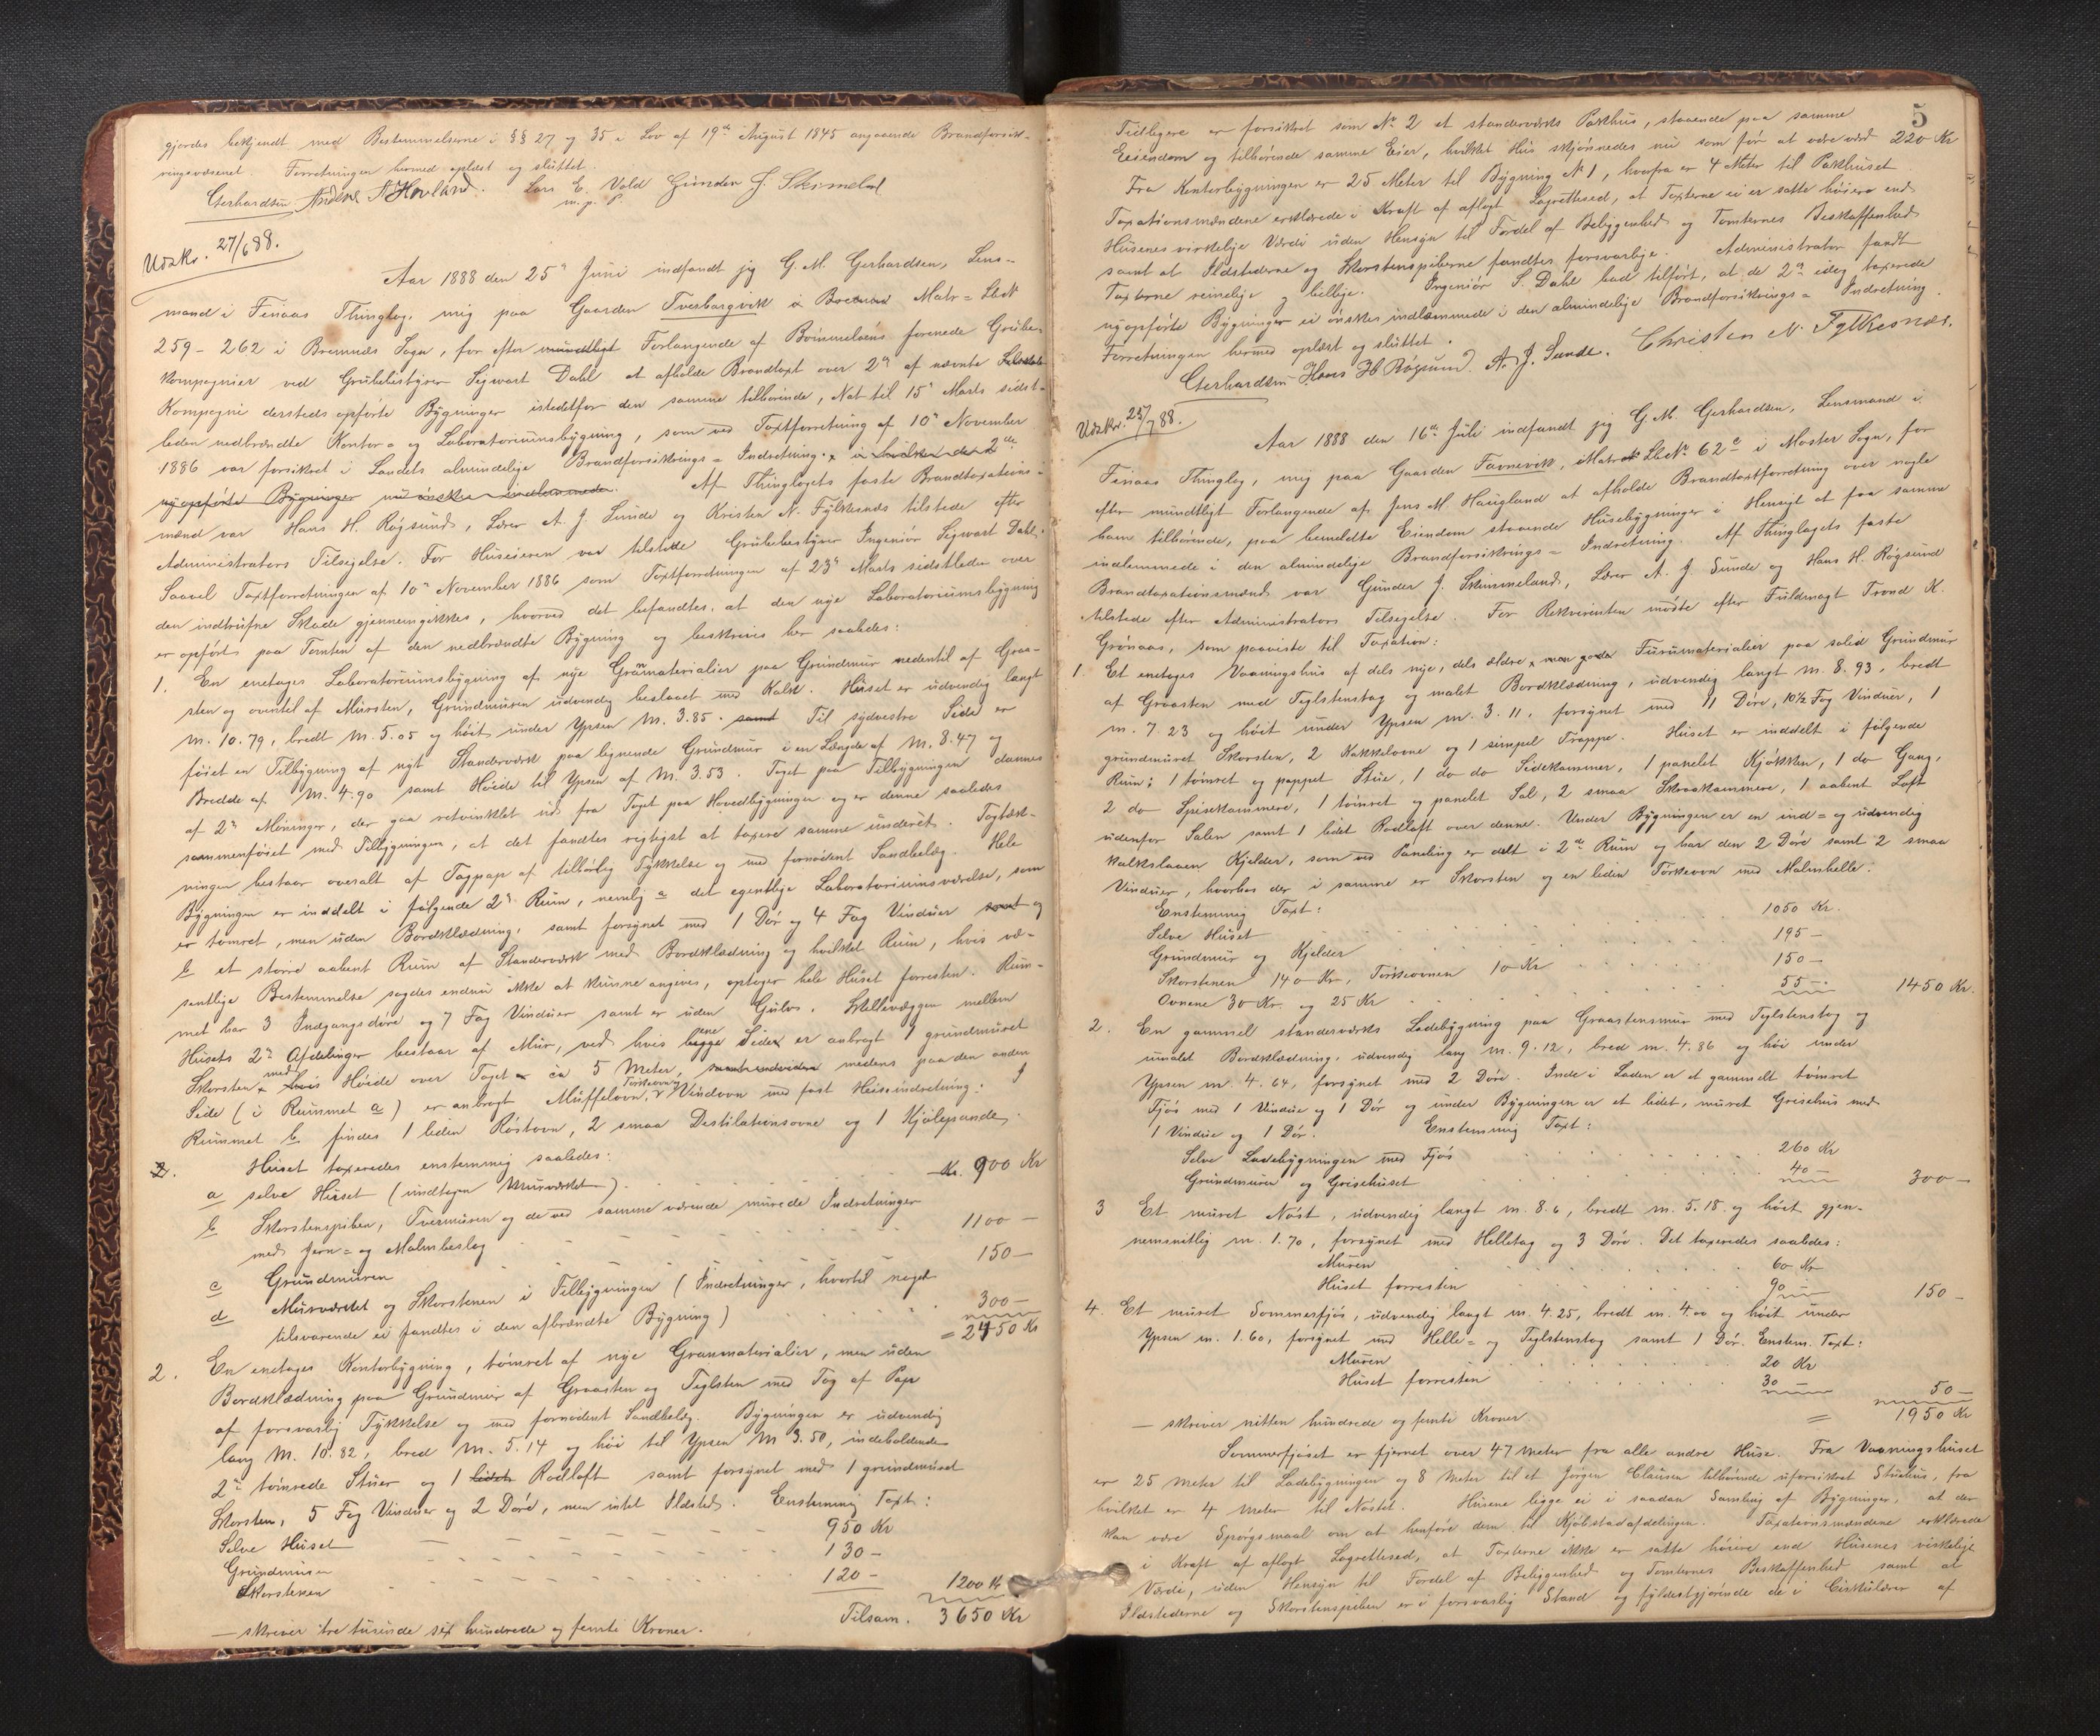 gjordes bekjendt med Bestemmelserne i §§ 27 og 35 i Lov af 19de August 1845 angaaende Brandforsik-
ringsvæsenet. Forretningen hermed oplæst og sluttet.
Gerhardsen Anders A Hovland. Lars E. Vold Gunder J. Skimeland
m. p. P.
Udskr. 27/6 88.
Aar 1888 den 25de Juni indfandt jeg G. M. Gerhardsen, Lens-
mand i Finaas Thinglag, mig paa Gaarden Tverborgvik i Matr = LbN
259 – 262 i Bremnæs Sogn, for efter mundtligt Forlangende af Bømmeløens forenede Grube-
kompagnier ved Grubebestyrer Segwart Dahl at afholde Brandtaxt over 2de af nævnte
Kompagni dersteds opførte Bygninger istedetfor den samme tilhørende, Nat til 15de Marts sidst-
leden nedbrændte Kontor- og Laboratoriumsbygning, som ved Taxtforretning af 10de November
1886 var forsikret i Landets almindelige Brandforsikrings = Indretning. i hvilken de 2de
nyopførte Bygninger nu ønskes indlemmede. Af Thinglagets faste Brandtaxations-
mænd var Hans H. Røgsund, Lærer A. J. Sunde og Kristen N. Fylkesnæs tilstede efter
Administrators Tilsigelse. For Huseieren var tilstede Grubebestyrer Ingeniør Segwart Dahl.
Saavel Taxtforretningen af 10de November 1886 som Taxtforretningen af 23de Marts sidstleden over
den indtrufne Skade gjennemgikkes, hvorved det befandtes, at den nye Laboratoriumsbygning
er opført paa Tomten af den nedbrændte Bygning og beskrives her saaledes:
1. En enetages Laboratoriumsbygning af nye Granmaterialier paa Grundmur nedentil af Graa-
sten og oventil af Mursten, Grundmuren udvendig beslaaet med Kalk. Huset er udvendig langt
M. 10.79, bredt M. 5.05 og høit under Ypsen M. 3.85. samt Til sydvestre Side er
føiet en Tilbygning af nyt Standerværk paa lignende Grundmur i en Længde af M. 8.47 og
Bredde af M. 4.90 samt Høide til Ypsen af M. 3.53. Taget paa Tilbygningen dannes
af 2de Møninger, der gaa retvinklet ud fra Taget paa Hovedbygningen og er denne saaledes
sammenføiet med Tilbygningen, at det fandtes rigtigst at taxere samme underet. Tagtæk-
ningen bestaar overalt af Tagpap af tilbørlig Tykkelse og med fornødent Sandbelæg. Hele
Bygningen er inddelt i følgende 2de Rum, nemlig a det egentlige Laboratoriumsværelse, som
er tømret, men uden Bordklædning, samt forsynet med 1 Dør og 4 Fag Vinduer samt og
b et større aabent Rum af Standerværk med Bordklædning og hvilket Rum, hvis væ-
sentlige Bestemmelse sagdes endnu ikke at kunne angives, optager hele Huset forresten. Rum-
met har 3 Indgangsdøre og 7 Fag Vinduer samt er uden Gulv. Skillevæggen mellem
Husets 2de Afdelinger bestaar af Mur, ved hvis begge ene Sider er anbragt 1 grundmuret
Skorsten med hvis Høide over Taget ca 5 Meter, medens paa den anden
Side (i Rummet a) er anbragt Muffelovn, Tørkeovn, Vindovn med fast Heiseindretning. I
Rummet b findes 1 liden Røstovn, 2 smaa Destilationsovne og 1 Kjølepande.
2. Huset taxeredes enstemmig saaledes:
a selve Huset (undtagen Murværket) . Kr. 900 Kr
b Skorstenspiben, Tvermuren og de ved samme værende murede Indretninger
med Jern = og Malmbeslag 1100 —
c Grundmuren 150 —
d Murværket og Skorstenen i Tilbygningen (Indretninger, hvortil noget
tilsvarende ei fandtes i den afbrændte Bygning) 300 —
= 2450 Kr
2. En enetages Kontorbygning, tømret af nye Granmaterialier, men uden
Bordklædning paa Grundmur af Graasten og Teglsten med Tag af Pap
af forsvarlig Tykkelse og med fornødent Sandbelæg. Bygningen er udvendig
lang M. 10.82, bred M. 5.14 og høi til Ypsen M 3.50, indeholdende
2de tømrede Stuer og 1 lidet Rodloft samt forsynet med 1 grundmuret
Skorsten, 5 Fag Vinduer og 2 Døre, men intet Ildsted. Enstemmig Taxt:
Selve Huset 950 Kr
Grundmuren 130 —
Skorstenen 120 — 1200 Kr
Tilsam. 3650 Kr
— skriver tre tusinde sex hundrede og femti Kroner.
5
Tidligere er forsikret som No 2 et standerværks Pakhus, staaende paa samme
Eiendom og tilhørende samme Eier, hvilket Hus skjønnedes nu som før at være værd 220 Kr
Fra Kontorbygningen er 25 Meter til Bygning No 1, hvorfra er 4 Meter til Pakhuset
Taxationsmændene erklærede i Kraft af aflagt Lagrettesed, at Taxterne ei er satte høiere end
Husenes virkelige Værdi uden Hensyn til Fordel af Beliggenhed og Tomternes Beskaffenhed
samt at Ildstederne og Skorstenspiberne fandtes forsvarlige. Administrator fandt
Taxterne rimelige og billige. Ingeniør S. Dahl bad tilført, at de 2de idag taxerede
nyopførte Bygninger ei ønskes indlemmede i den almindelige Brandforsikrings = Indretning.
Forretningen hermed oplæst og sluttet.
Gerhardsen Hans H Røgsund. A. J. Sunde. Christen N. Fylkesnæs.
Udskr. 25/7 88.
Aar 1888 den 16de Juli indfandt jeg G. M. Gerhardsen, Lensmand i
Finaas Thinglag, mig paa Gaarden Favnevik, Matr LbNo 62c i Moster Sogn, for
efter mundtligt Forlangende af Jens M. Haugland at afholde Brandtaxtforretning over nogle
ham tilhørende, paa bemeldte Eiendom staaende Husebygninger i Hensigt at faa samme
indlemmede i den almindelige Brandforsikrings = Indretning. Af Thinglagets faste
Brandtaxationsmænd var Gunder J. Skimmeland, Lærer A. J. Sunde og Hans H. Røgsund
tilstede efter Administrators Tilsigelse. For Rekvirenten mødte efter Fuldmagt Trond K.
Grønaas, som paaviste til Taxation:
1. Et enetages Vaaningshus af dels nye, dels ældre, men gode Furumaterialier paa solid Grundmur
af Graasten med Teglstenstag og malet Bordklædning, udvendig langt M. 8.93, bredt
m. 7.23 og høit under Ypsen m. 3.11, forsynet med 11 Døre, 10½ Fag Vinduer, 1
grundmuret Skorsten, 2 Kakkelovne og 1 simpel Trappe. Huset er inddelt i følgende
Rum: 1 tømret og pappet Stue, 1 do do Sidekammer, 1 panelet Kjøkken, 1 do Gang,
2 do Spisekammere, 1 tømret og panelet Sal, 2 smaa Skraakammere, 1 aabent Loft
udenfor Salen samt 1 lidet Rodloft over denne. Under Bygningen er en ind = og udvendig
kalkslaaen Kjelder, som ved Paneling er delt i 2de Rum og har den 2 Døre samt 2 smaa
Vinduer, hvorhos der i samme er Skorsten og en liden Tørkeovn med Malmhelle.
Enstemmig Taxt:
Selve Huset 1050 Kr.
Grundmur og Kjelder 195 —
Skorstenen 140 Kr, Tørkeovnen 10 Kr 150 —
Ovnene 30 Kr. og 25 Kr 55 — 1450 Kr.
2. En gammel standerværks Ladebygning paa Graastensmur med Teglstenstag og
umalet Bordklædning, udvendig lang m. 9.12, bred m. 4.86 og høi under
Ypsen m. 4.64, forsynet med 2 Døre. Inde i Laden er et gammelt tømret
Fjøs med 1 Vindue og 1 Dør og under Bygningen er et lidet, muret Grisehus med
1 Vindue og 1 Dør. Enstemmig Taxt:
Selve Ladebygningen med Fjøs 260 Kr
Grundmuren og Grisehuset 40 — 300 —
3 Et muret Nøst, udvendig langt m. 8.6, bredt m. 5.18 og høit gjen-
nemsnitlig m. 1.70, forsynet med Helletag og 3 Døre. Det taxeredes saaledes:
Muren 60 Kr
Huset forresten 90 — 150 —
4. Et muret Sommerfjøs, udvendig langt m. 4.25, bredt m. 4.00 og høit under
Ypsen m. 1.60, forsynet med Helle = og Teglstenstag samt 1 Dør. Enstem. Taxt:
Muren 20 Kr
Huset forresten 30 — 50 —
— skriver nitten hundrede og femti Kroner = 1950 Kr
Sommerfjøset er fjernet over 47 Meter fra alle andre Huse. Fra Vaaningshuset
er 25 Meter til Ladebygningen og 8 Meter til et Jørgen Clausen tilhørende uforsikret Stuehus, fra
hvilket er 4 Meter til Nøstet. Husene ligge ei i saadan Samling af Bygninger, at der
kan være Spørgsmaal om at henføre dem til Kjøbstadafdelingen. Taxationsmændene erklærede
i Kraft af aflagt Lagrettesed, at Taxterne ikke er satte høiere end Husenes virkelige
Værdi, uden Hensyn til Fordel af Beliggenhed og Tomternes Beskaffenhed samt at
Ildstederne og Skorstenspiben er i forsvarlig Stand og fyldestgjørende de i Cirkulærer af